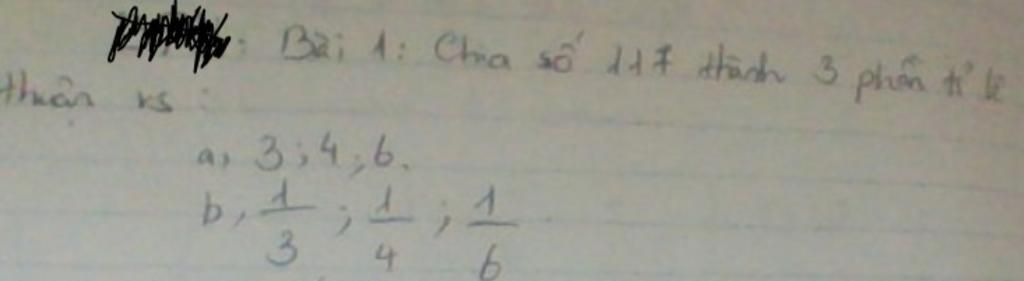 : Bài 1: Chia số 117 thành 3 phần tỉ lệ
thuận vs :
a, 3; 4; 6.
b, 1/3 ; 1/4 ; 1/6